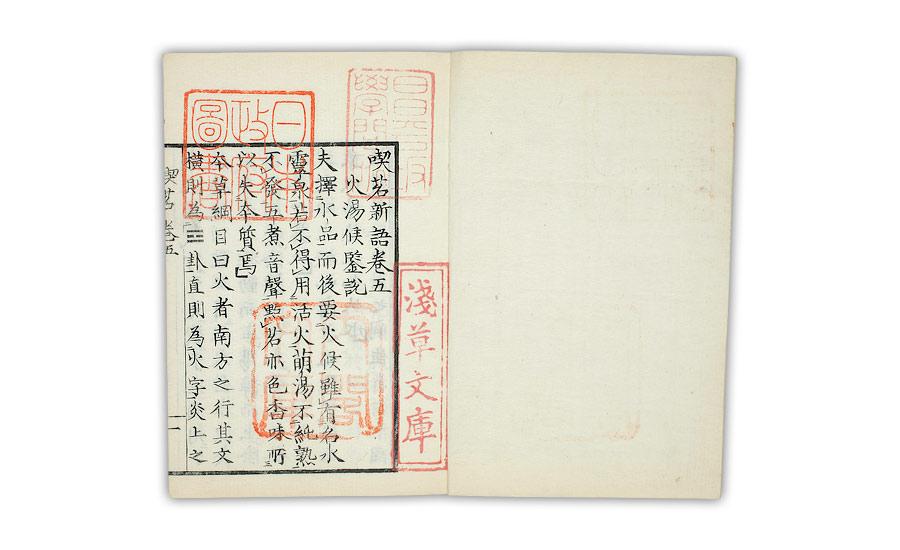 昌平坂
學問所
喫茗新語卷五
火湯候鑒說
夫擇水品而後要火候雖有名水
靈泉若不得用活火萌湯不純熟
不發五煮音聲點茗亦色香味所
以失夲質焉
夲草綱目曰火者南方之行其文
橫則為☲卦直則為火字炎上之
喫茗卷五
一
淺草文庫
日本
政府
圖書